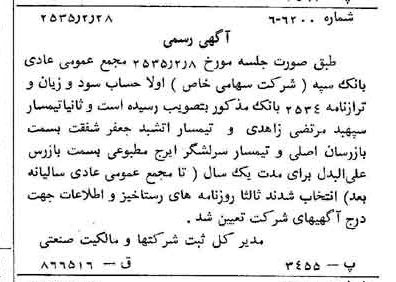 شماره ۶-۶۲۰۰ ۲۵۳۵/۲/۲۸
آگهی رسمی
طبق صورت جلسه مورخ ۲۵۳۵/۲/۸ مجمع عمومی عادی
بانک سپه ( شرکت سهامی خاص ) اولا حساب سود و زیان و
ترازنامه ۲۵۳۴ بانک مذکور بتصویب رسیده است و ثانیا تیمسار
سپهبد مرتضی زاهدی و تیمسار اتشبد جعفر شفقت بسمت
بازرسان اصلی و تیمسار سرلشگر ایرج مطبوعی بسمت بازرس
علی‌البدل برای مدت یک سال ( تا مجمع عمومی عادی سالیانه
بعد) انتخاب شدند ثالثا روزنامه های رستاخیز و اطلاعات جهت
درج آگهیهای شرکت تعیین شد .
مدیر کل ثبت شرکتها و مالکیت صنعتی
پ — ۳۴۵۵ ق — ۸۶۶۵۱۶